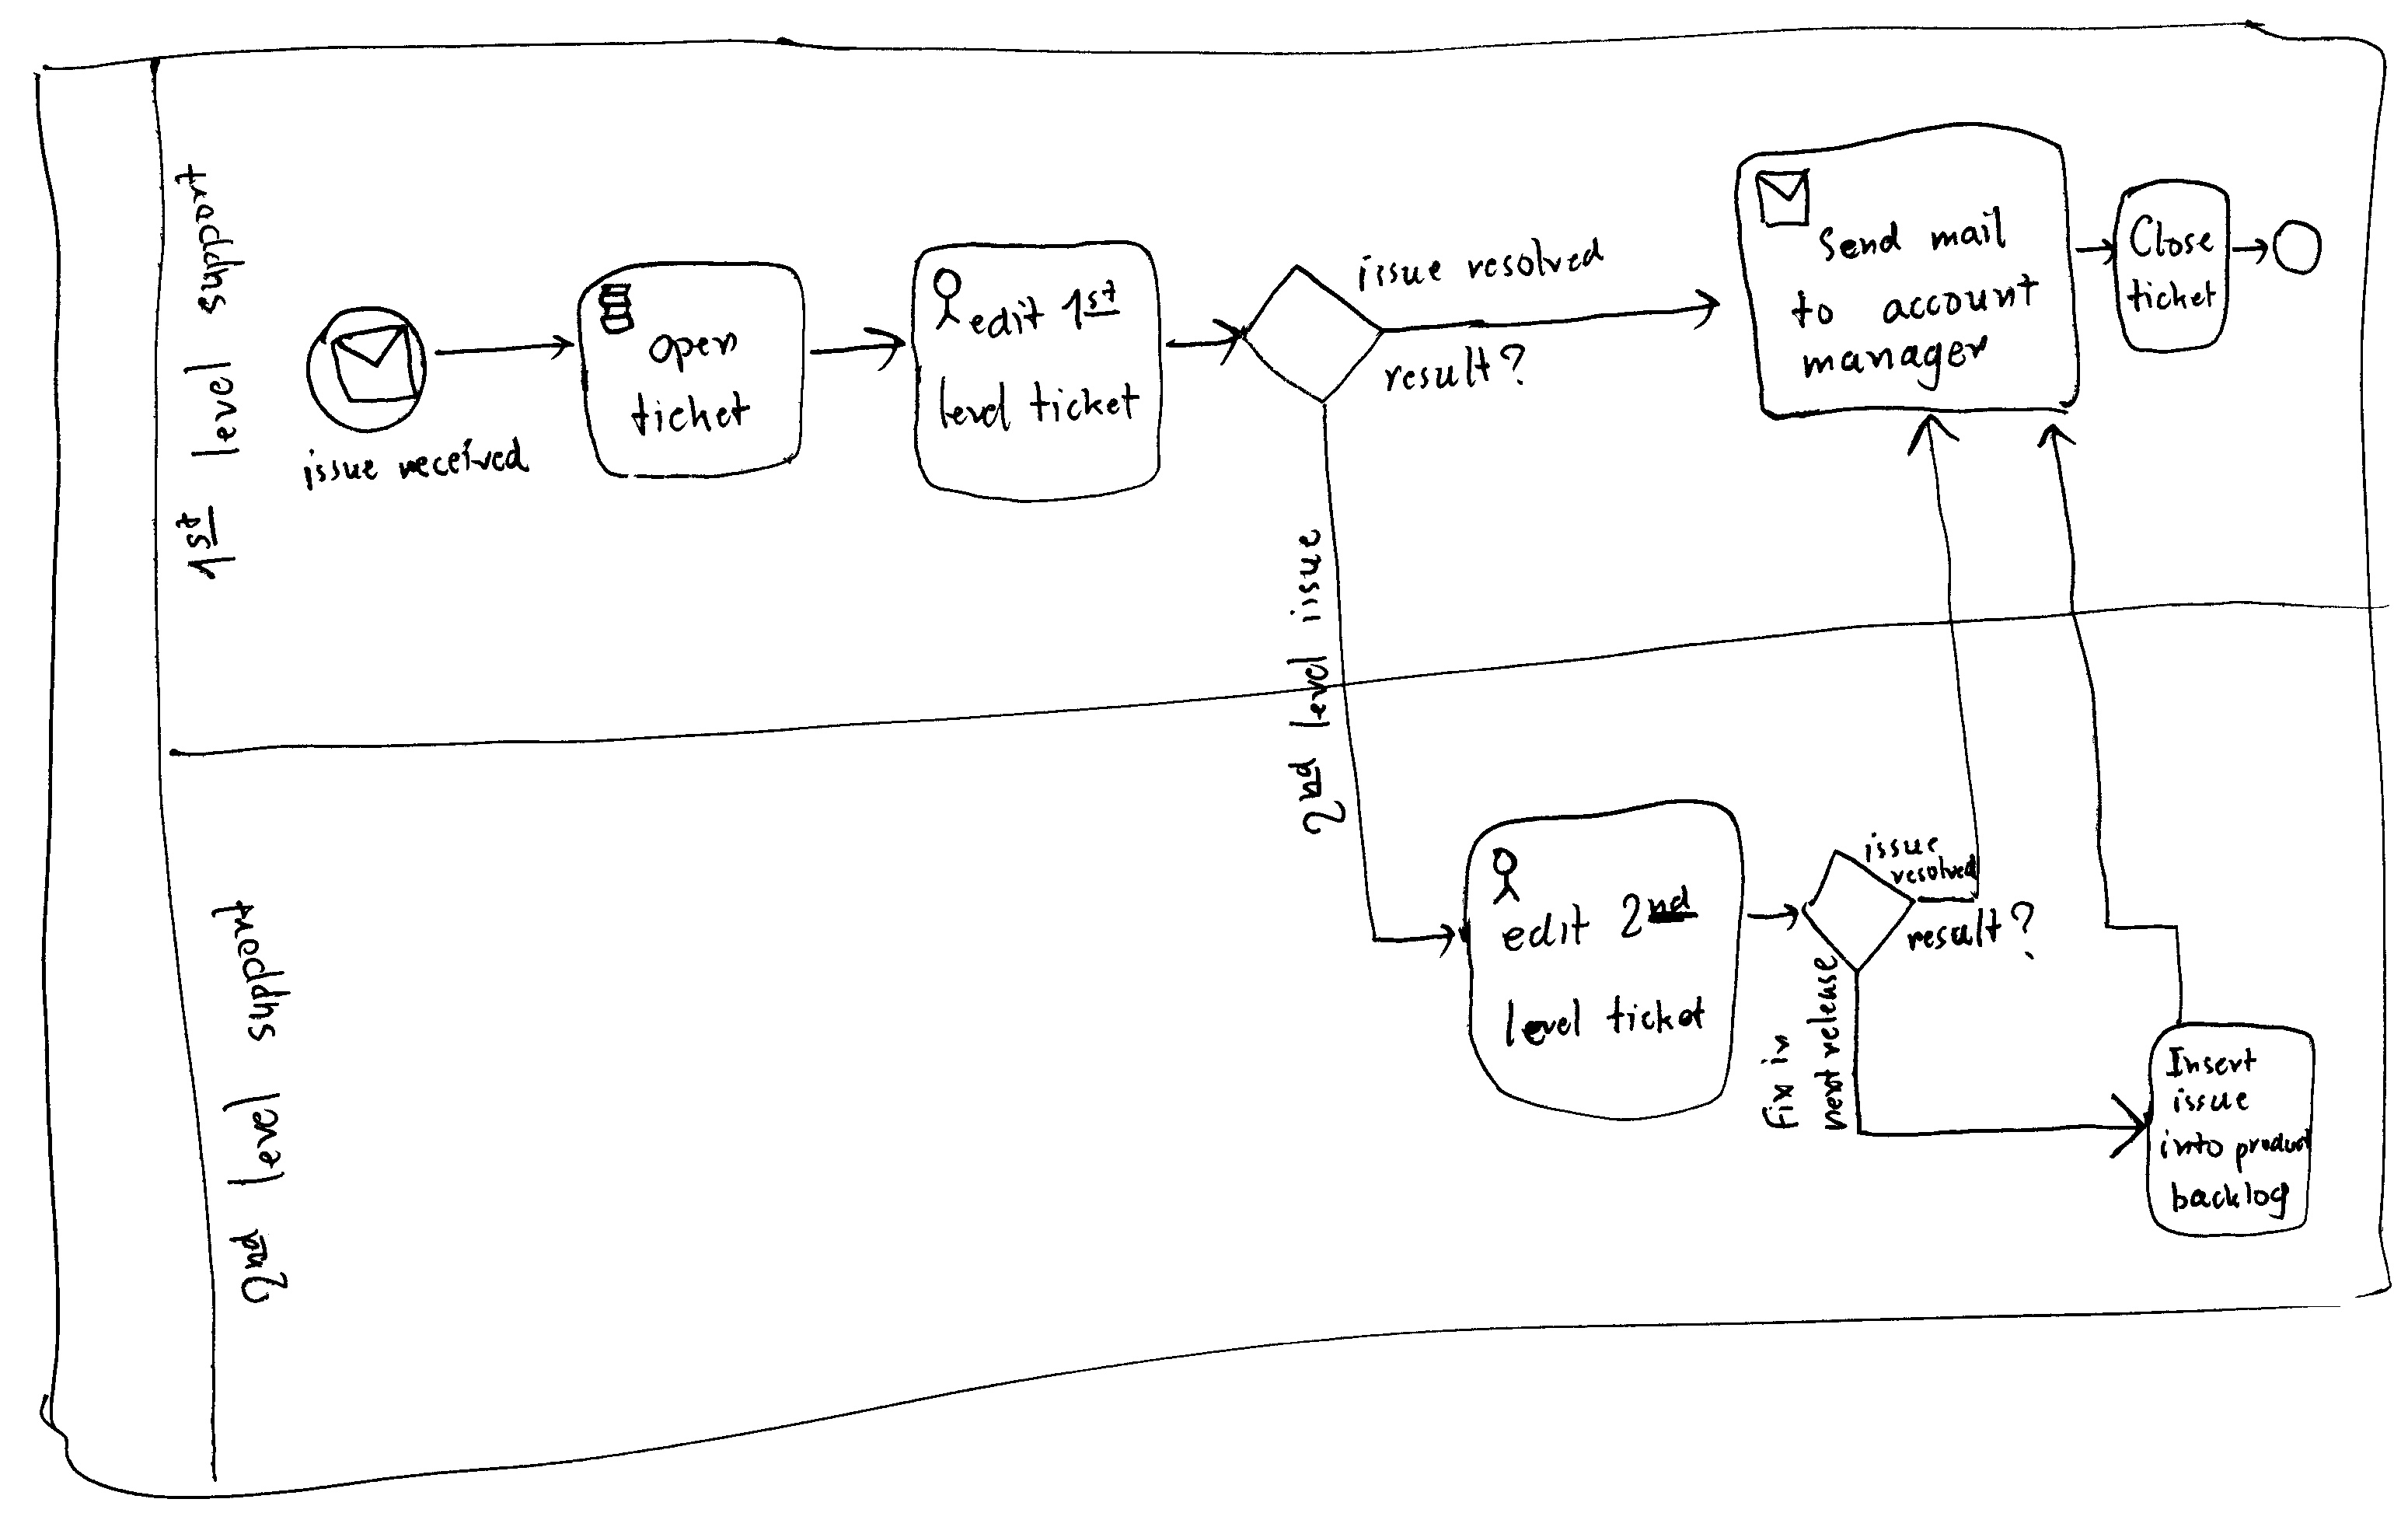 1st level support
issue received
open
ticket
edit 1st
level ticket
issue resolved
result?
Send mail
to account
manager
Close
ticket
2nd level issue
2nd level support
edit 2nd
level ticket
issue
resolved
result?
Fix in
next release
Insert
issue
into product
backlog